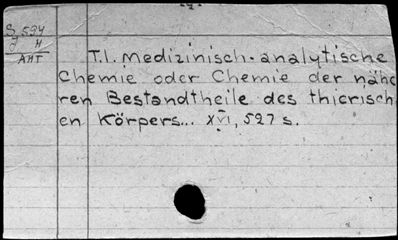 S 534
J H
AHT
T.1. Medizinisch-analytische
Chemie oder Chemie der nähe
ren Bestandtheile des thierisch
en Körpers... XVI, 527 s.